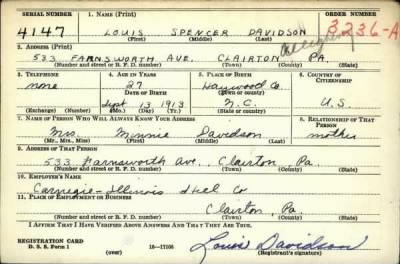 SERIAL NUMBER 1. NAME (Print) ORDER NUMBER
4147 LOUIS SPENCER DAVIDSON 3236-A
(First) (Middle) (Last)
2. ADDRESS (Print) Allegheny
533 FARNSWORTH AVE. CLAIRTON PA.
(Number and street or R. F. D. number) (Town) (County) (State)
3. TELEPHONE 4. AGE IN YEARS 5. PLACE OF BIRTH 6. COUNTRY OF CITIZENSHIP
none 27 Haywood Co.
DATE OF BIRTH (Town or county)
Sept 13 1913 N.C. U.S.
(Exchange) (Number) (Mo.) (Day) (Yr.) (State or country)
7. NAME OF PERSON WHO WILL ALWAYS KNOW YOUR ADDRESS 8. RELATIONSHIP OF THAT PERSON
Mrs. Minnie Davidson mother
(Mr., Mrs., Miss) (First) (Middle) (Last)
9. ADDRESS OF THAT PERSON
533 Farnsworth Ave., Clairton, Pa.
(Number and street or R. F. D. number) (Town) (County) (State)
10. EMPLOYER'S NAME
Carnegie-Illinois Steel Co
11. PLACE OF EMPLOYMENT OR BUSINESS
Clairton, Pa.
(Number and street or R. F. D. number) (Town) (County) (State)
I AFFIRM THAT I HAVE VERIFIED ABOVE ANSWERS AND THAT THEY ARE TRUE.
REGISTRATION CARD
D. S. S. Form 1 16—17105 Louis Davidson
(over) (Registrant's signature)